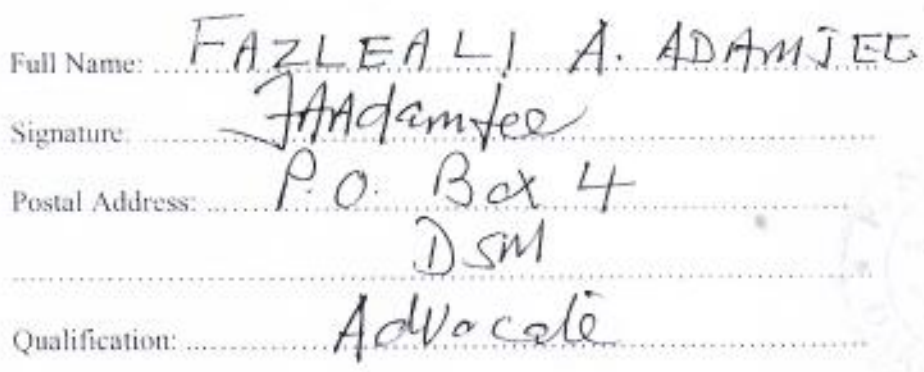 Full Name: FAZLEALI A. ADAMJEE
Signature: FAAdamjee
Postal Address: P.O. Box 4
DSM
Qualification: Advocate